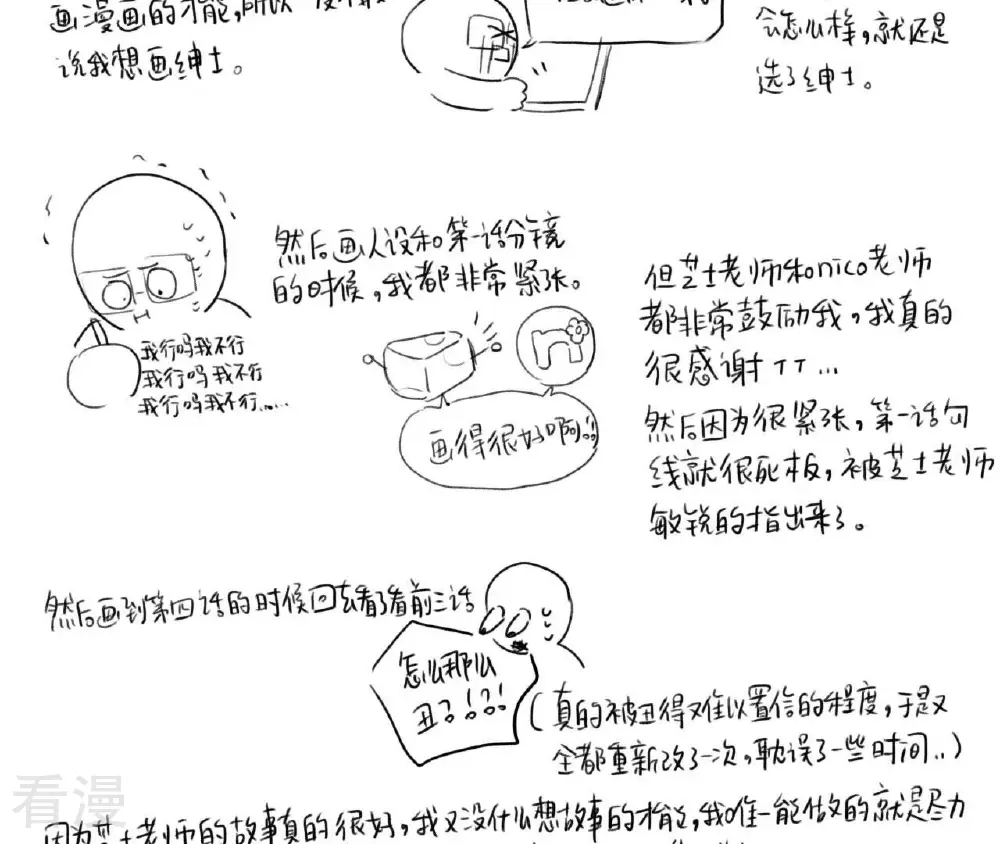 画漫画的才能,所以
说我想画绅士。
会怎么样,就还是
选了绅士。
然后画人设和第一话分镜
的时候,我都非常紧张。
我行吗我不行
我行吗我不行
我行吗我不行......
画得很好啊!!
但芝士老师和nico老师
都非常鼓励我,我真的
很感谢TT...
然后因为很紧张,第一话勾
线就很死板,被芝士老师
敏锐的指出来了。
然后画到第四话的时候回去看了看前三话
怎么那么
丑了!?!
(真的被丑得难以置信的程度,于是又
全都重新改了一次,耽误了一些时间..)
因为芝士老师的故事真的很好,我又没什么想故事的才能,我唯一能做的就是尽力
看漫